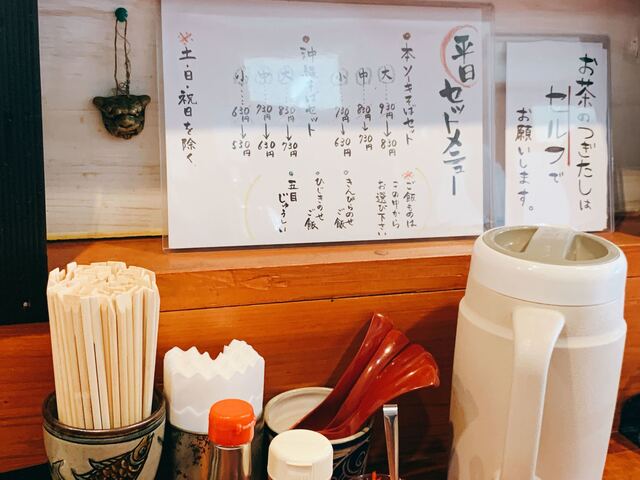 平日 セットメニュー
・本ソーキそばセット
大……930円→830円
中……830円→730円
小……730円→630円
・沖縄そばセット
大……830円→730円
中……730円→630円
小……630円→530円
※土・日・祝日を除く
※ご飯ものは
この中から
お選び下さい
・きんぴらのせ
ご飯
・ひじきのせ
ご飯
・五目
じゅうしい
お茶のつぎたしは
セルフで
お願いします。